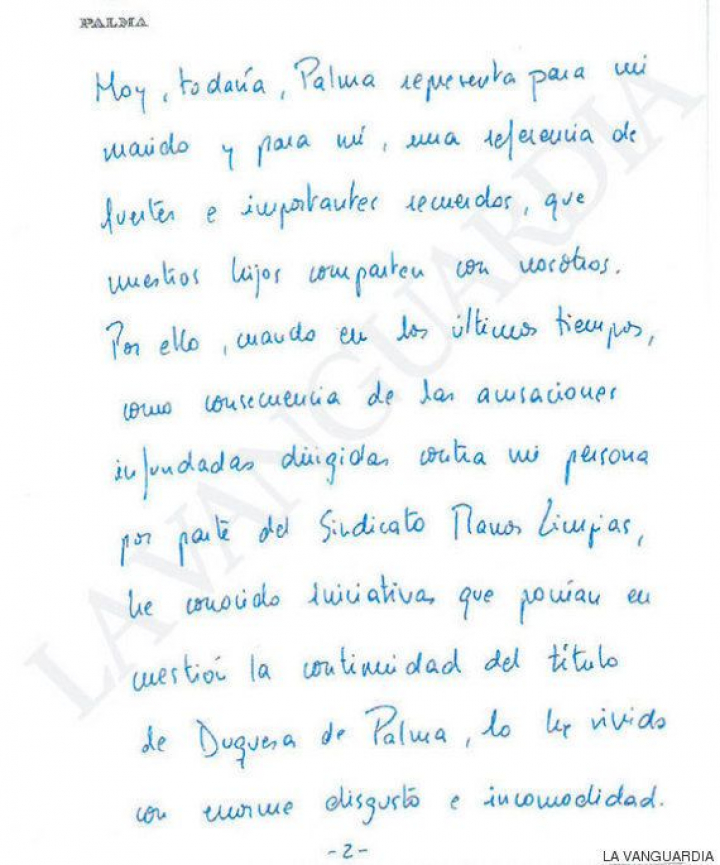 PALMA
Hoy, todavía, Palma representa para mi
marido y para mí, una referencia de
fuertes e importantes recuerdos, que
nuestros hijos comparten con nosotros.
Por ello, cuando en los últimos tiempos,
como consecuencia de las acusaciones
infundadas dirigidas contra mi persona
por parte del Sindicato Manos Limpias,
he conocido iniciativas que ponían en
cuestión la continuidad del título
de Duquesa de Palma, lo he vivido
con enorme disgusto e incomodidad.
-2-
LA VANGUARDIA
LA VANGUARDIA